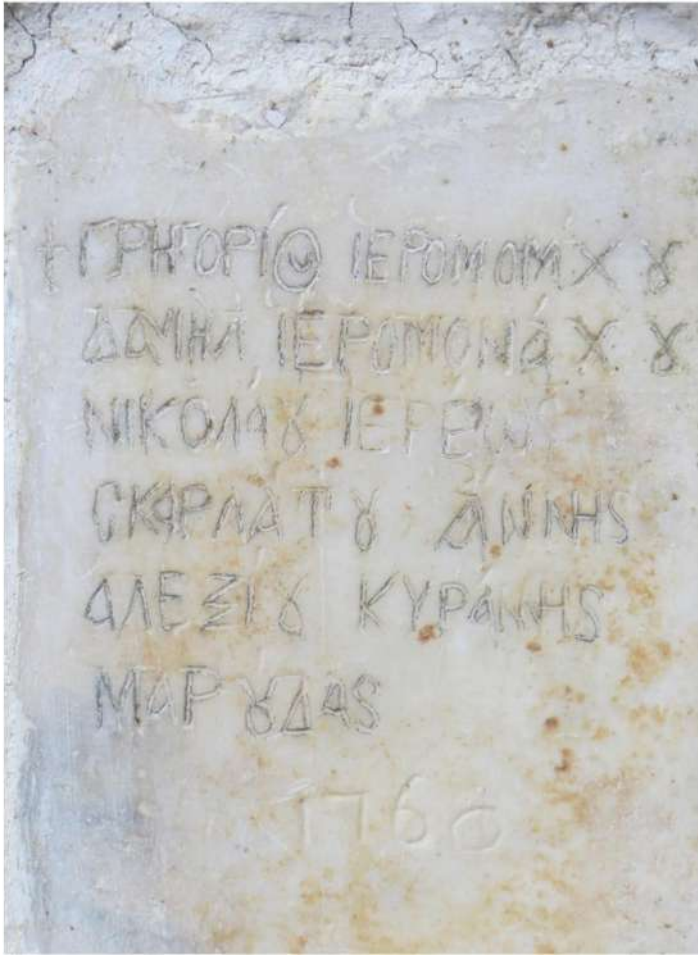 † ΓΡΗΓΟΡΙȣ ΙΕΡΟΜΟΝΑΧȣ
ΔΑΝΙΗΛ ΙΕΡΟΜΟΝΑΧȣ
ΝΙΚΟΛΑȣ ΙΕΡΕΩΣ
CΚΑΡΛΑΤȣ ΑΝΝΗS
ΑΛΕΞΙȣ ΚΥΡΑΝΗS
ΜΑΡȣΔΑS
1766